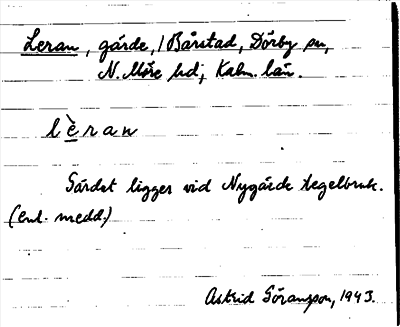 Leran, gärde, /Bårstad, Dörby sn,
N. Möre hd; Kalm. län.
lèran
Gärdet ligger vid Nygärde tegelbruk.
(enl. medd.)
Astrid Göransson, 1943.